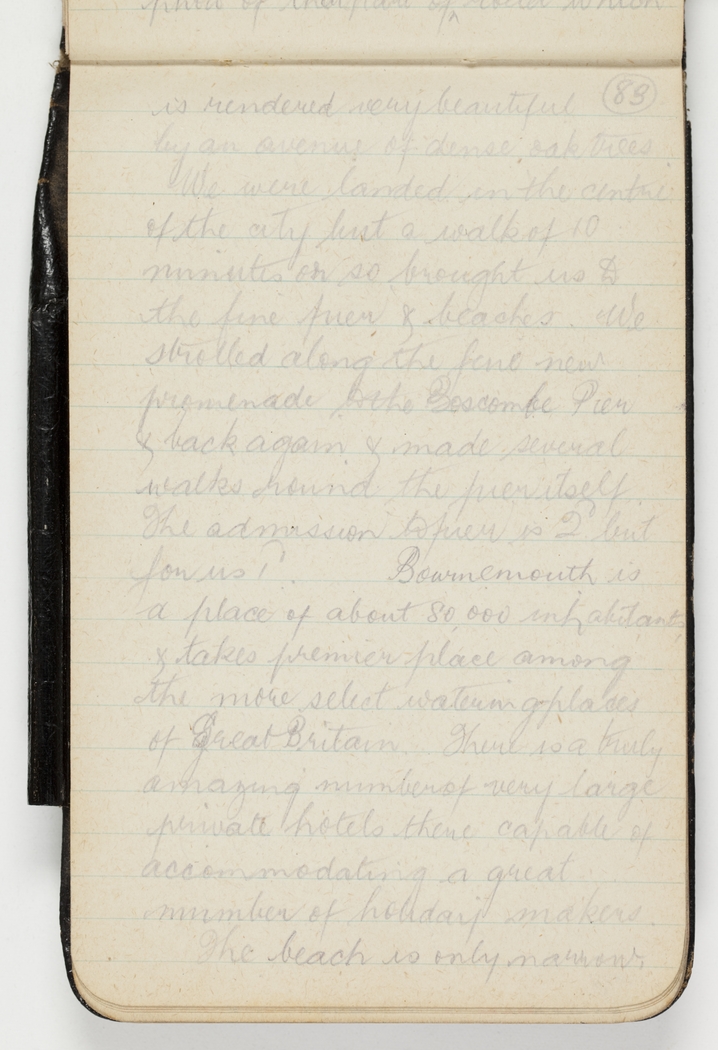 (89)
is rendered very beautiful
by an avenue of dense oak trees
We were landed in the centre
of the city but a walk of 10
minutes or so brought us to
the fine pier & beaches. We
strolled along the fine new
promenade to the Boscombe Pier
& back again & made several
walks round the pier itself.
The admission to pier is 2ᵈ but
for us 1ᵈ. Bournemouth is
a place of about 80,000 inhabitants
& takes premier place among
the more select watering places
of Great Britain. There is a truly
amazing number of very large
private hotels there capable of
accommodating a great
number of holiday makers.
The beach is only narrow,